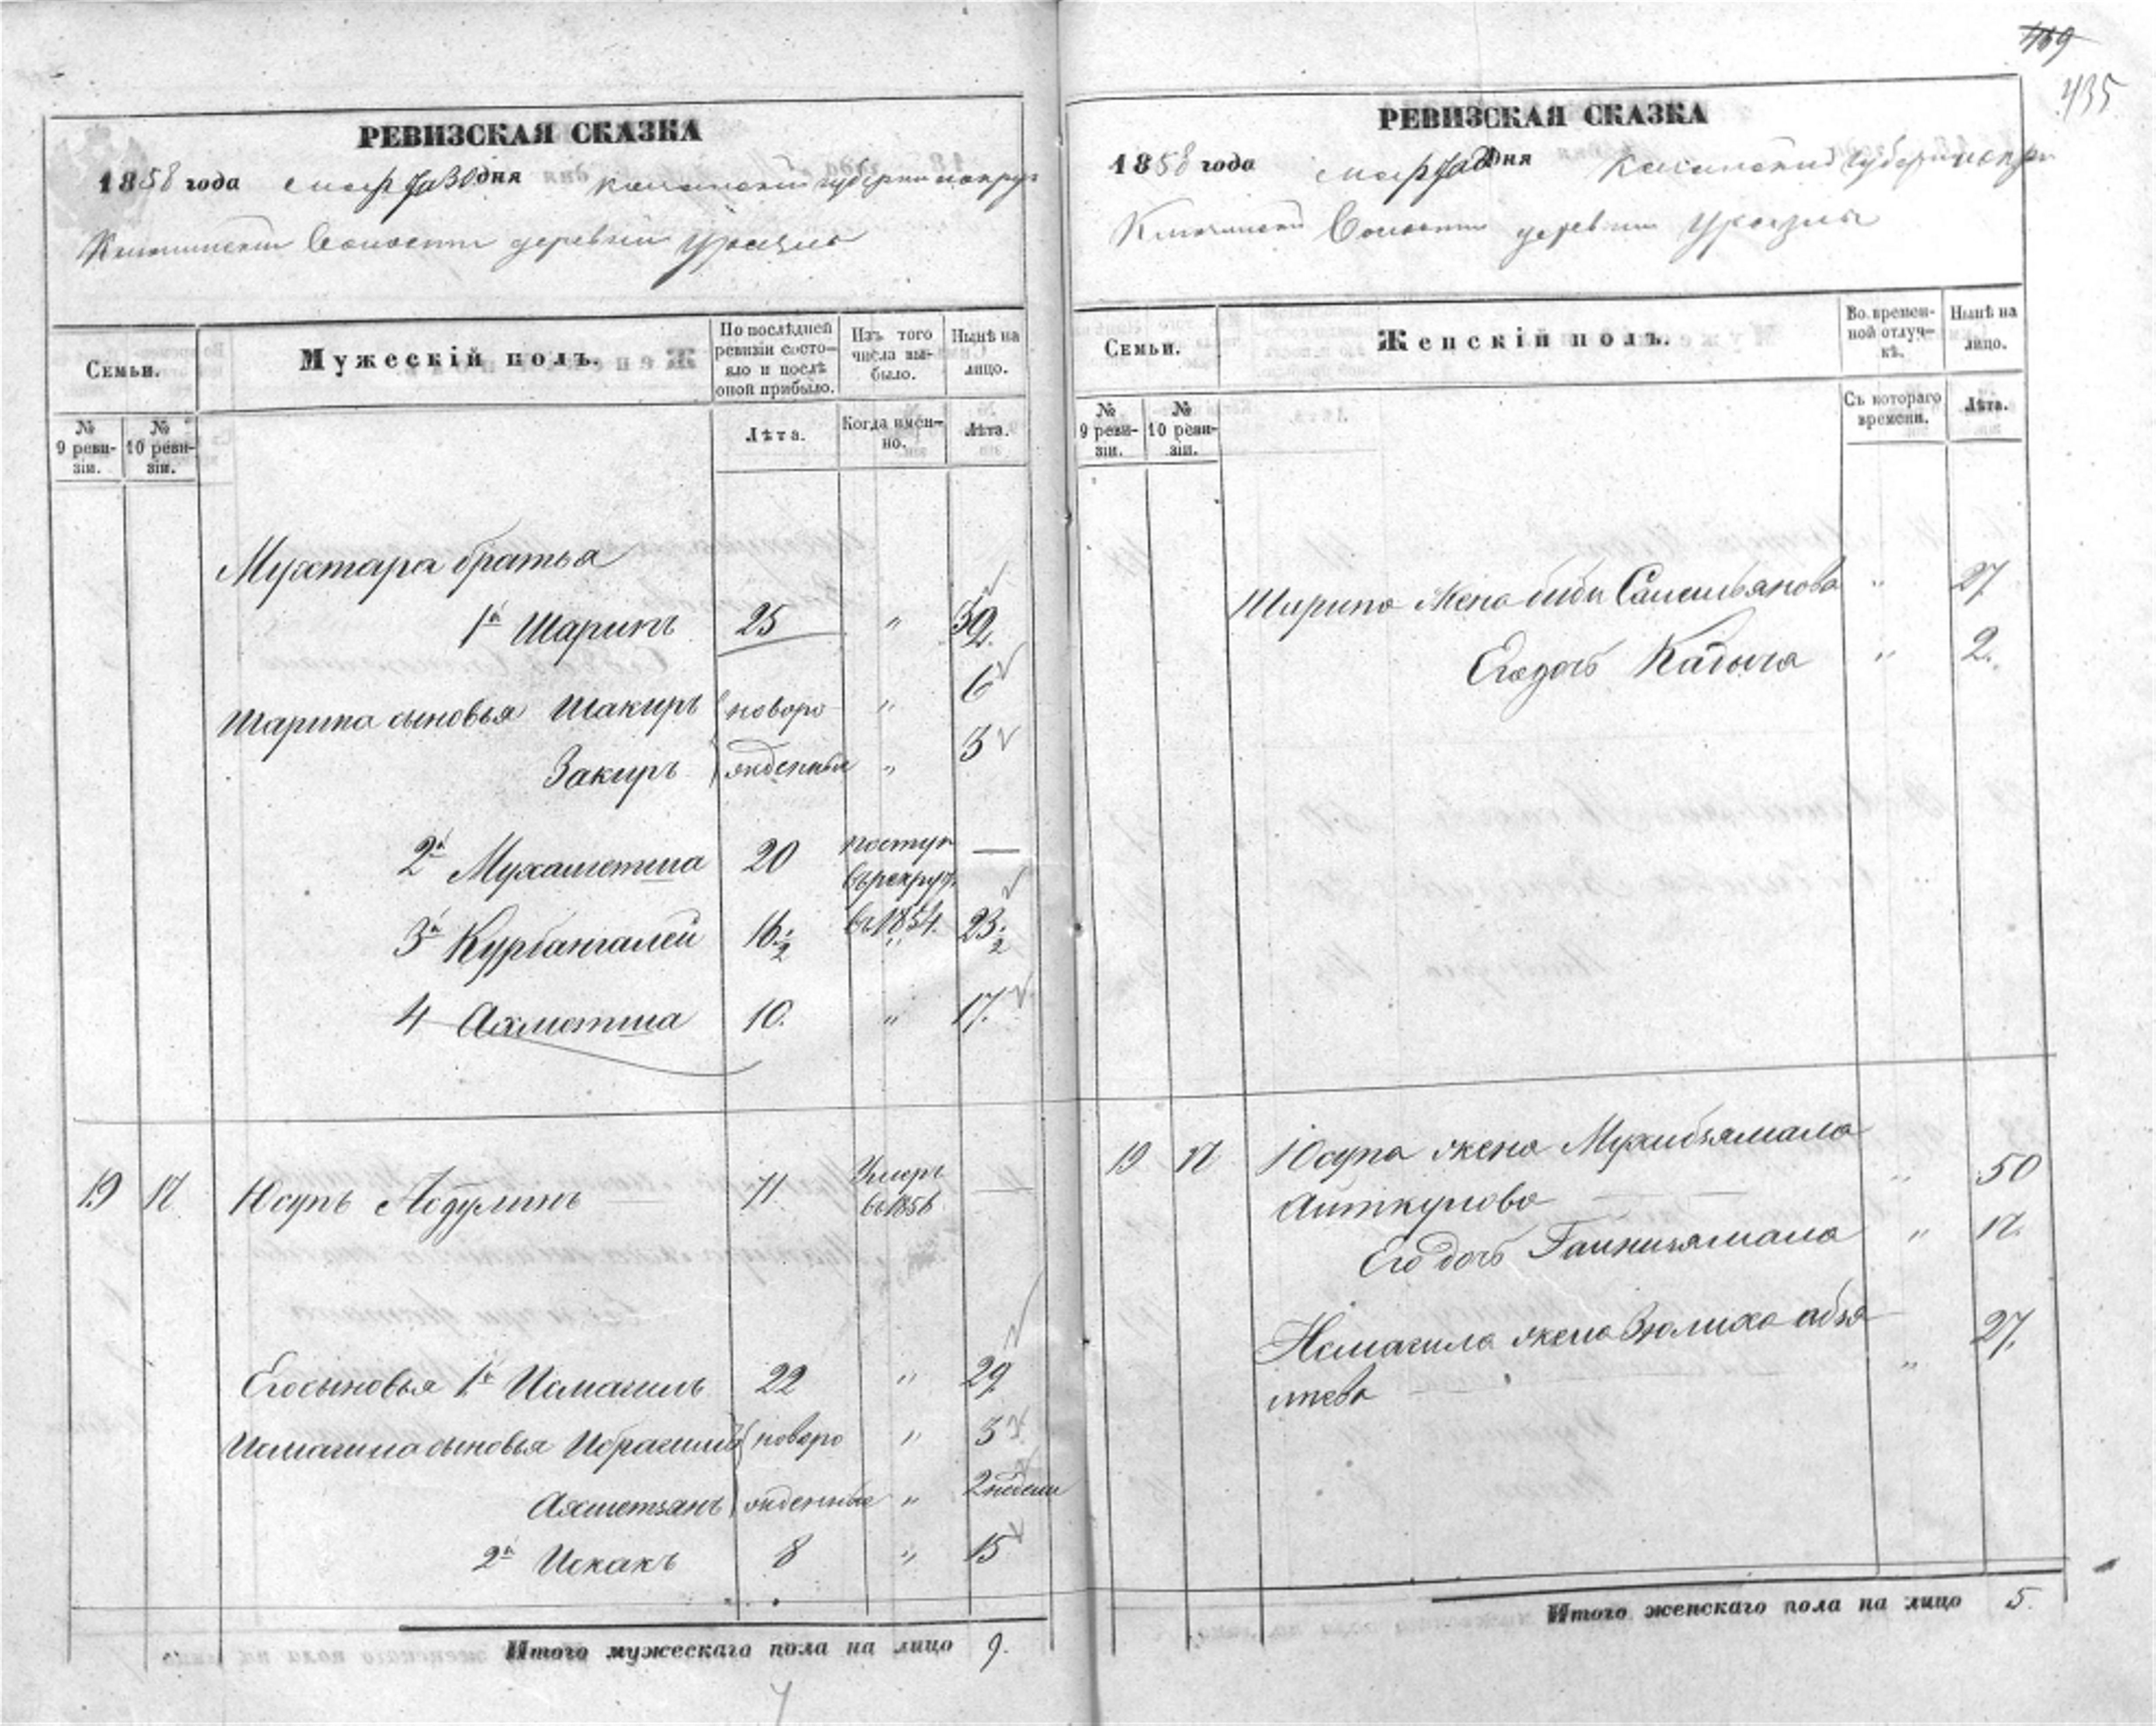 469
435
РЕВИЗСКАЯ СКАЗКА
1858 года марта 30 дня казанской губернии
волости деревни Уразлы
Семьи.
Мужескій полъ.
По послѣдней ревизіи состояло и послѣ оной прибыло.
Изъ того числа выбыло.
Нынѣ на лицо.
№ 9 ревизіи.
№ 10 ревизіи.
Лѣта.
Когда именно.
Лѣта.
Мухтара братья
1й Шарипъ 25 " 32.
Шарипа сыновья Шакиръ новоро " 6
Закиръ жденные " 3
2й Мухаметша 20 поступ —
въ рекрут.
въ 1854.
3й Курбангалей 16½ " 23½
4 Ахметша 10. " 17.
19 17 Юсупъ Абдулинъ 71 Умеръ —
въ 1856
Его сыновья 1й Исмагилъ 22 " 29.
Исмагила сыновья Ибрагимъ новоро " 3
Ахметзянъ жденные " 2 недели
2й Искакъ 8 " 15
Итого мужескаго пола на лицо 9.
РЕВИЗСКАЯ СКАЗКА
1858 года марта дня Казанской губернии
волости деревни Уразлы
Семьи.
Женскій полъ.
Во временной отлучкѣ.
Нынѣ на лицо.
№ 9 ревизіи.
№ 10 ревизіи.
Съ котораго времени.
Лѣта.
Шарипа жена биби " 27
Его дочь " 2.
19 17 Юсупа жена Мухибзямала
Аиткулова " 50
Его дочь Гаинизямала " 17.
Исмагила жена Зюлиха абзя
лтева " 27.
Итого женскаго пола на лицо 5.